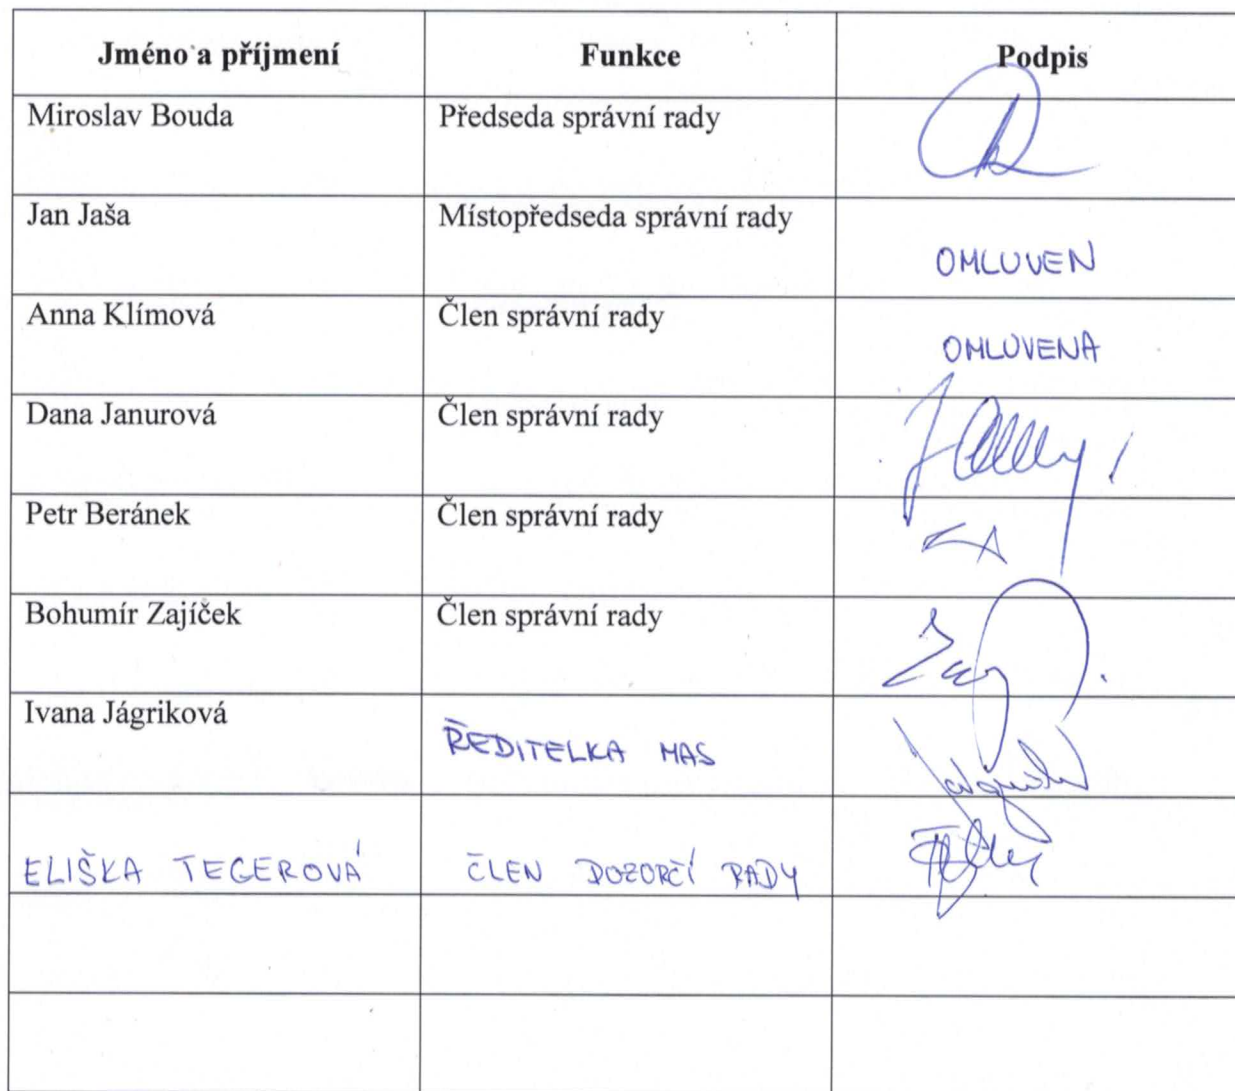 Jméno a příjmení Funkce Podpis
Miroslav Bouda Předseda správní rady
Jan Jaša Místopředseda správní rady
OMLUVEN
Anna Klímová Člen správní rady
OMLUVENA
Dana Janurová Člen správní rady
Petr Beránek Člen správní rady
Bohumír Zajíček Člen správní rady
Ivana Jágriková
ŘEDITELKA MAS
ELIŠKA TEGEROVÁ ČLEN DOZORČÍ RADY